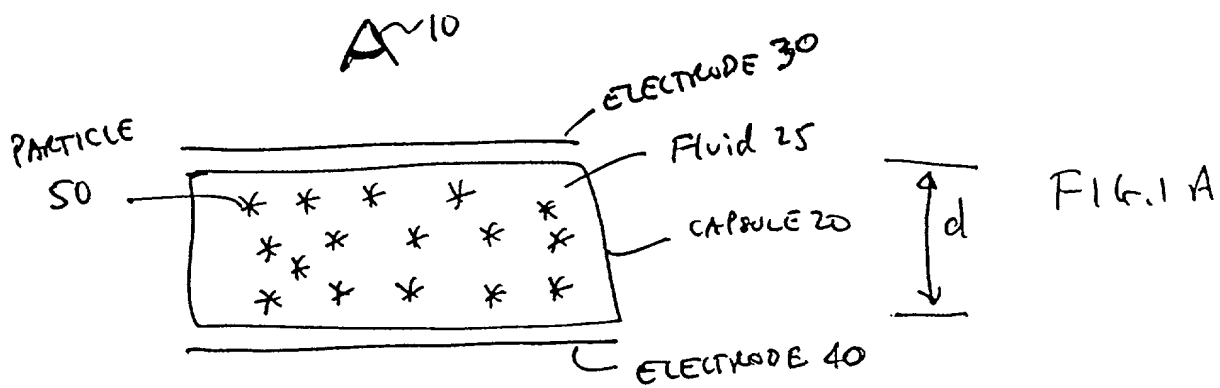 10
ELECTRODE 30
PARTICLE
50
Fluid 25
CAPSULE 20
d
FIG.1A
ELECTRODE 40